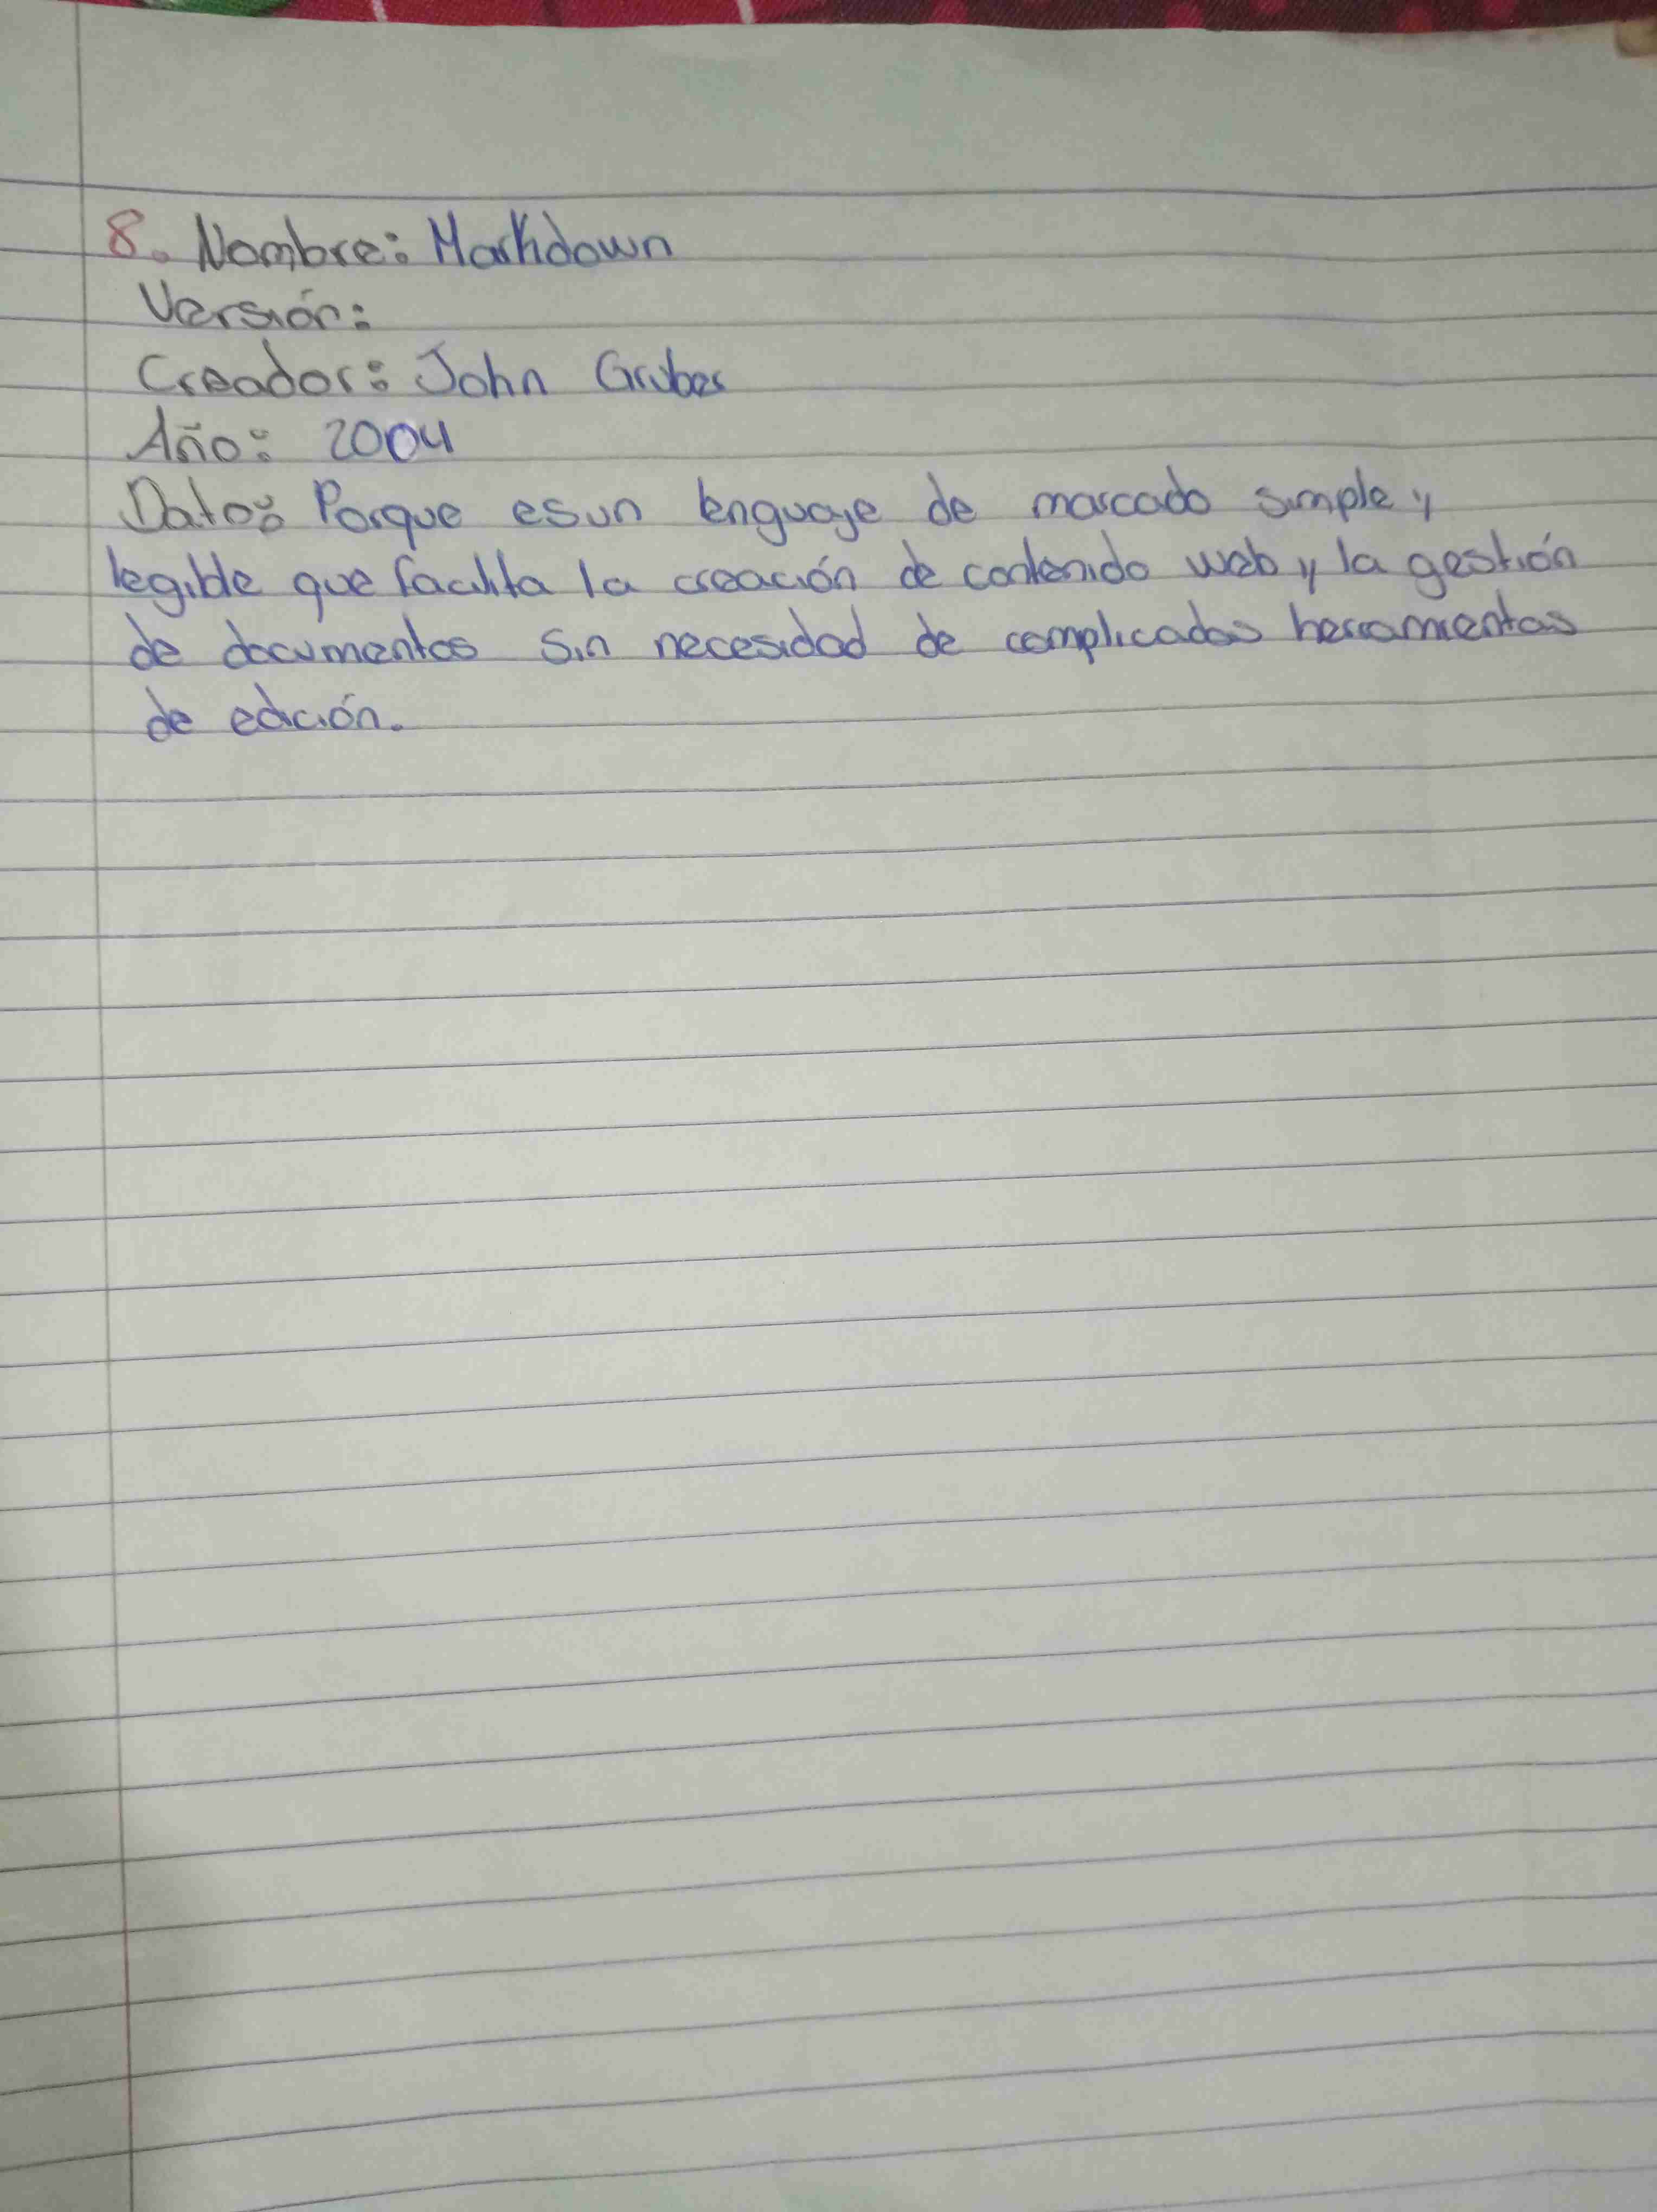 8. Nombre: Markdown
Versión:
Creador: John Gruber
Año: 2004
Dato: Porque es un lenguaje de marcado simple y
legible que facilita la creación de contenido web y la gestión
de documentos sin necesidad de complicadas herramientas
de edición.